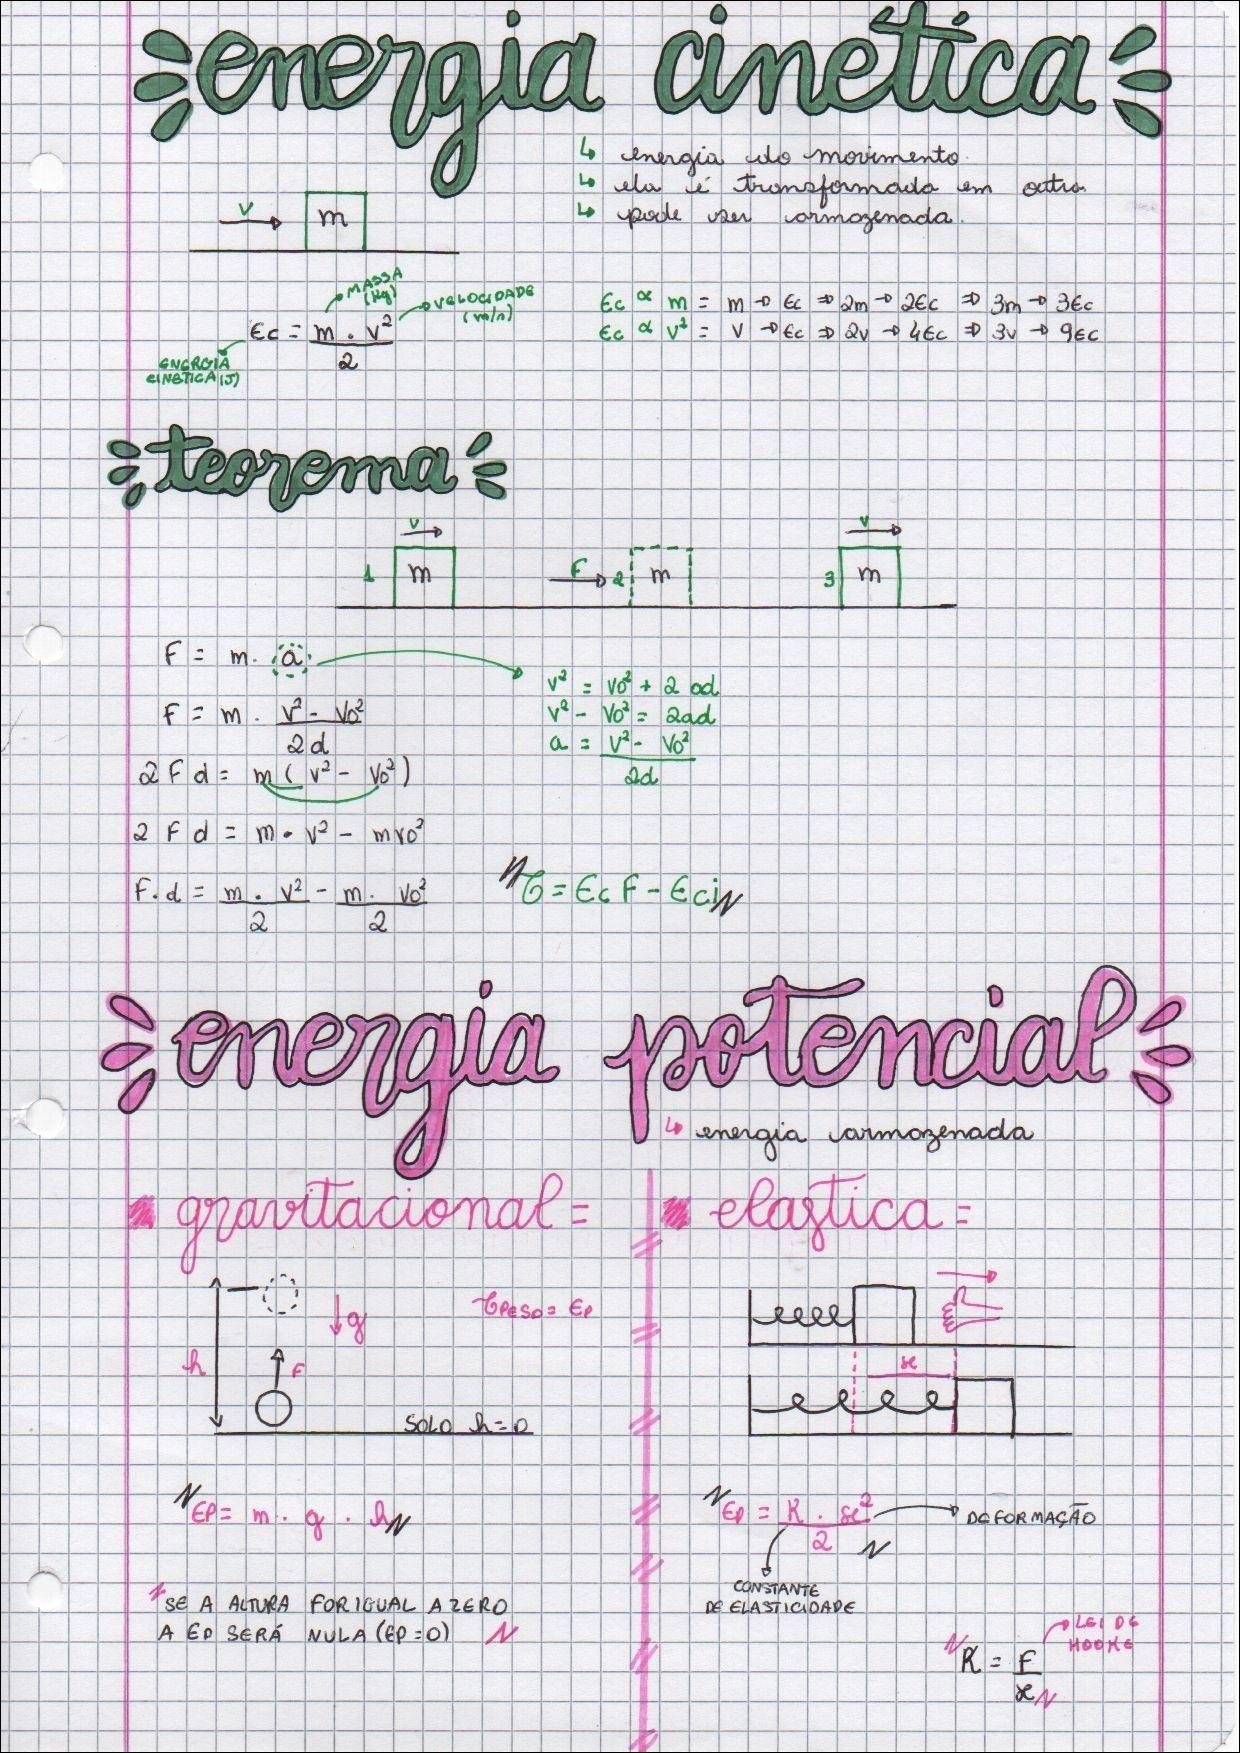 energia cinética
↳ energia do movimento
↳ ela é transformada em outra
↳ pode ser armazenada.
V
m
MASSA
(Kg)
VELOCIDADE
(m/s)
Ec = m . v²
2
ENERGIA
CINETICA (J)
Ec ∝ m = m → Ec ⇒ 2m → 2Ec ⇒ 3m → 3Ec
Ec ∝ v² = v → Ec ⇒ 2v → 4Ec ⇒ 3v → 9Ec
teorema
V
1 m
F 2 m
V
3 m
F = m . a
F = m . v² - vo²
2d
2 F d = m ( v² - vo² )
2 F d = m • v² - mvo²
F.d = m . v² - m . vo²
2 2
v² = vo² + 2 ad
v² - vo² = 2ad
a = v² - vo²
2d
"Ꞇ = Ec F - Eci"
energia potencial
↳ energia armazenada
gravitacional =
h
g
F
ꞆPESO = EP
SOLO h=0
"EP = m . g . h"
"SE A ALTURA FOR IGUAL A ZERO
A EP SERÁ NULA (EP=0) "
elastica =
x
"EP = K . x²
2 "
DEFORMAÇÃO
CONSTANTE
DE ELASTICIDADE
LEI DE
HOOKE
"K = F
x "